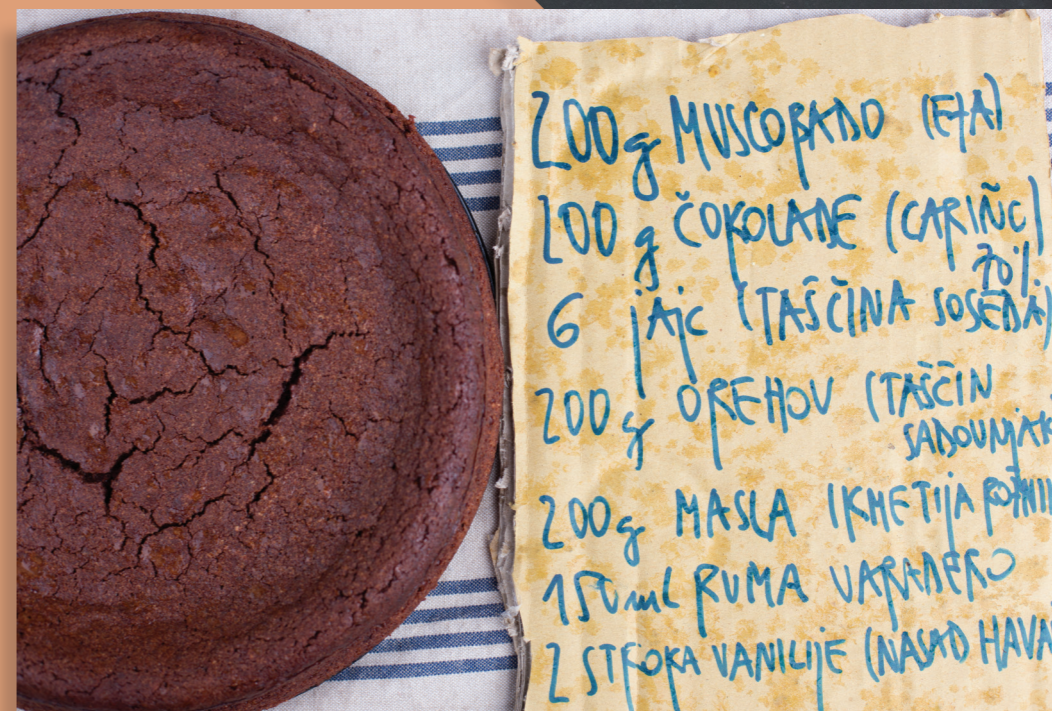 200g MUSCOBADO (ETA)
200 g ČOKOLADE (CARIÑC)
70%
6 jAjC (TAŠČINA SOSEDA)
200g OREHOV (TAŠČIN
200g MASLA (KMETIJA
150mL RUMA VARADERO
2 STROKA VANILIJE (NASAD